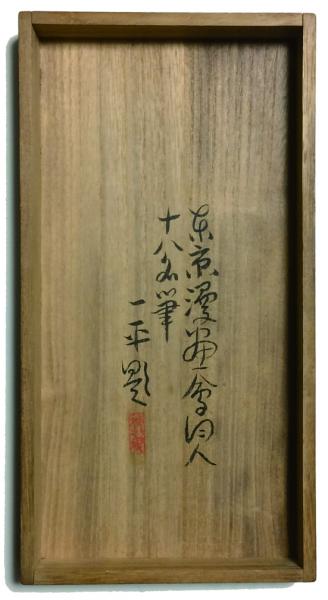 東京漫画会同人
十八名筆
一平題